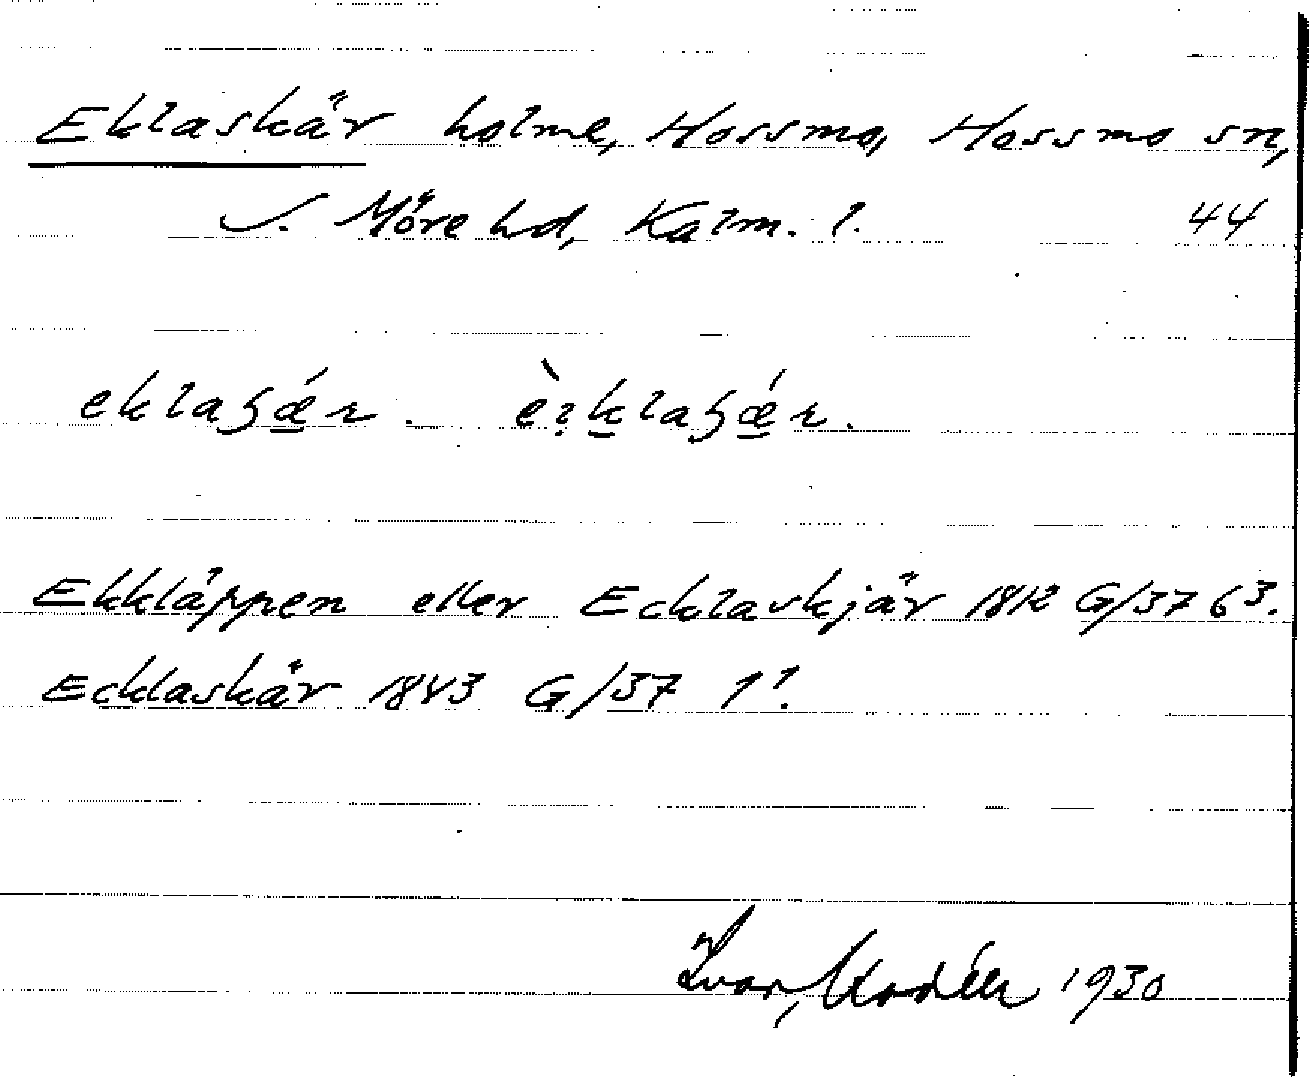 Eklaskär holme, Hossmo, Hossmo sn,
S. Möre hd, Kalm. l. 44
Ekkläppen eller Ecklaskjär 1812 G/37 6³.
Ecklaskär 1843 G/37 1¹.
Ivar Modéer 1930